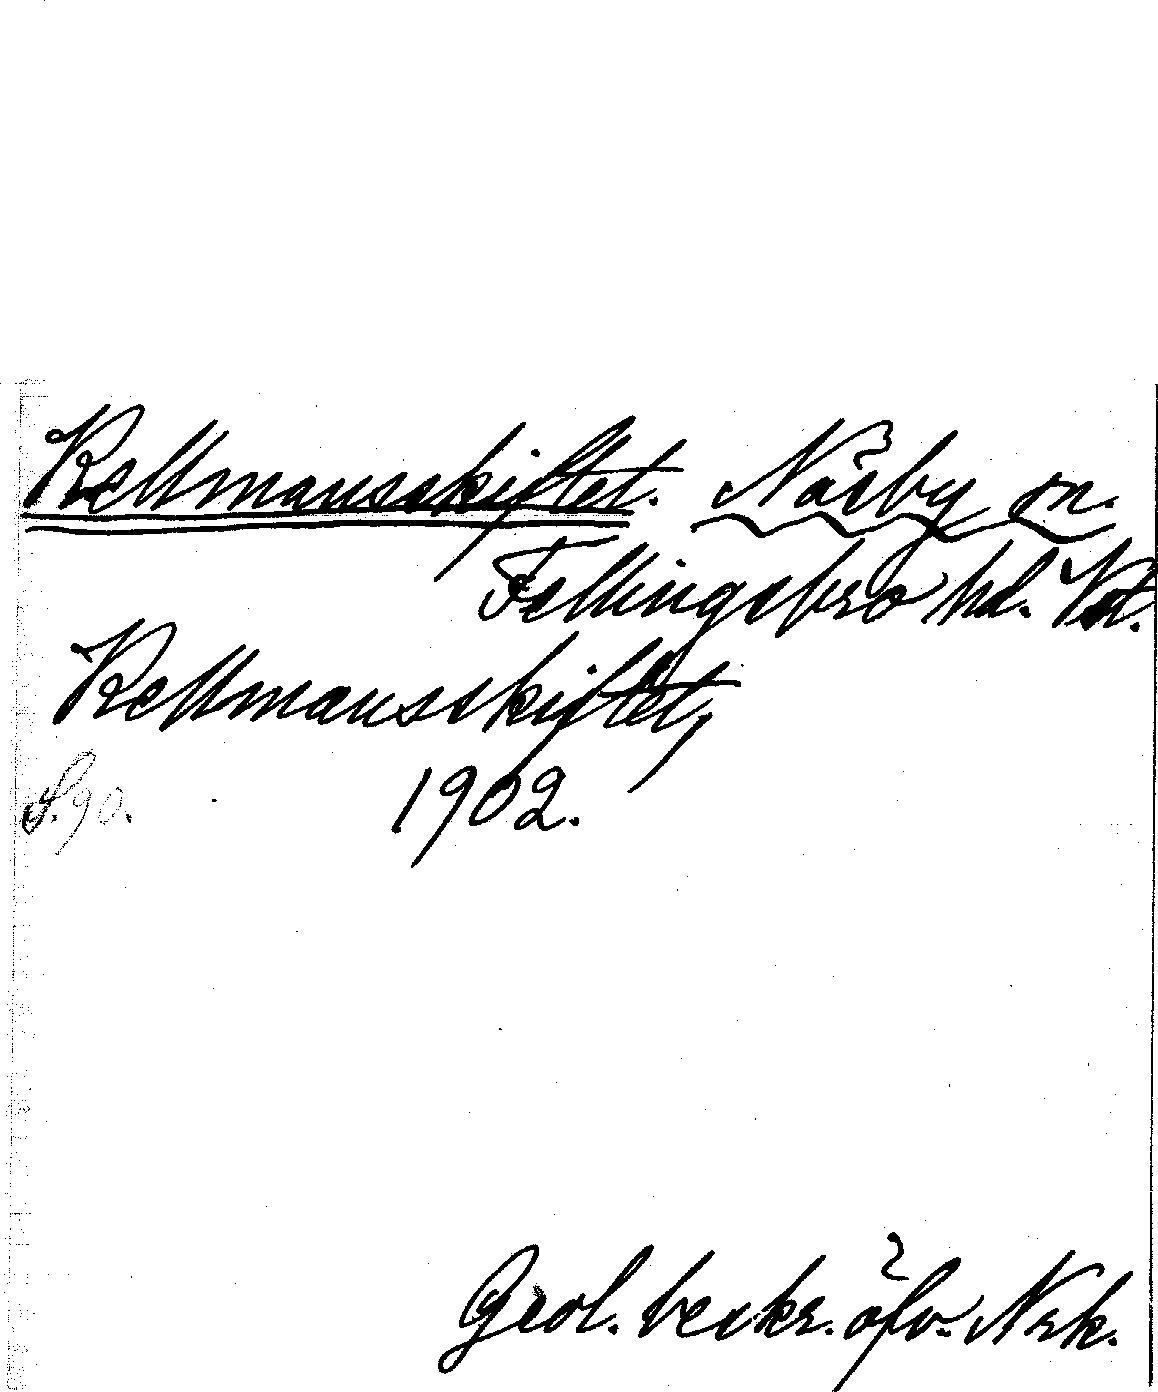 Kellmansskiftet. Näsby sn.
Fellingsbro hd. Vstm.
Kellmansskiftet,
S. 90. 1902.
Geol. beskr. öfv. Nrk.